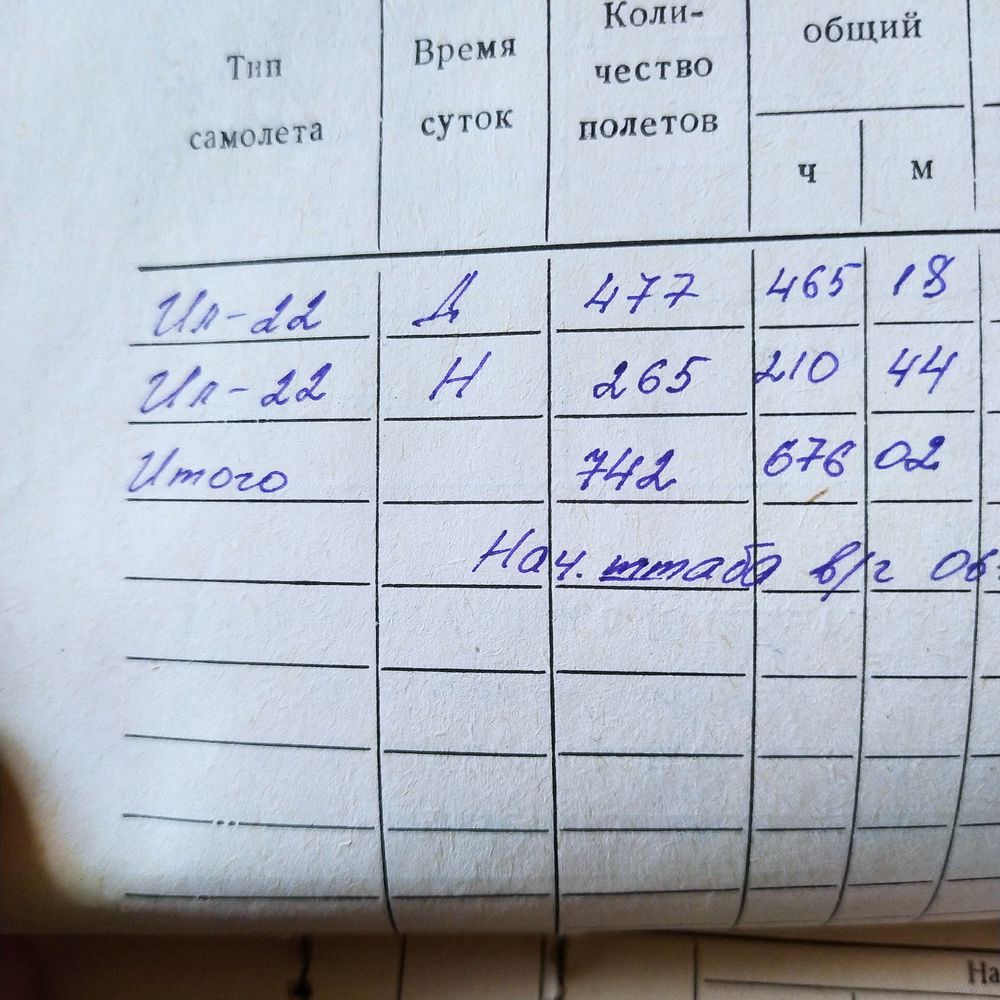 Тип самолета
Время суток
Коли-
чество
полетов
общий
ч м
Ил-22 Д 477 465 18
Ил-22 Н 265 210 44
Итого 742 676 02
Нач. штаба в/г
На